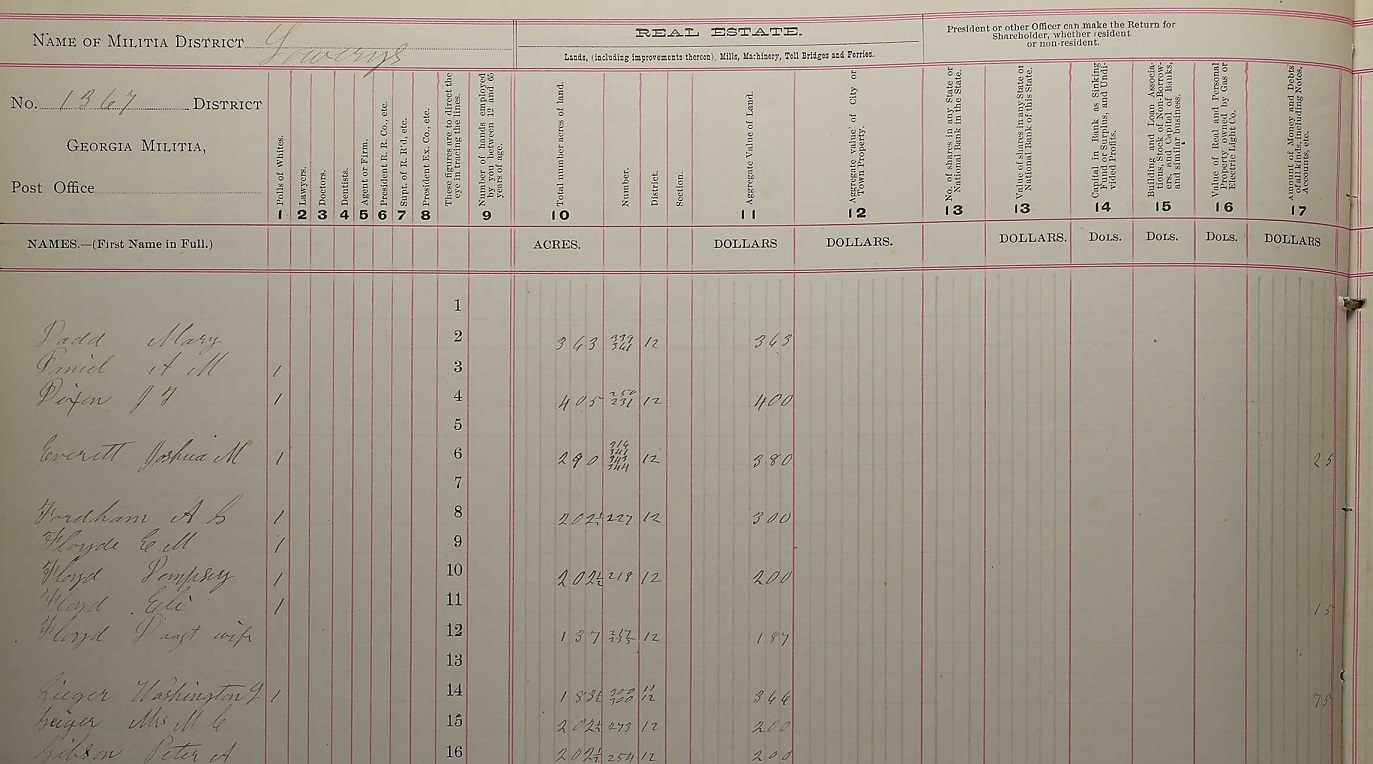 NAME OF MILITIA DISTRICT Lowerys
No. 1367 DISTRICT
GEORGIA MILITIA,
Post Office
Polls of Whites. 1
Lawyers. 2
Doctors. 3
Dentists. 4
Agent or Firm. 5
President R. R. Co., etc. 6
Supt. of R. R'd, etc. 7
President Ex. Co., etc. 8
These figures are to direct the eye in tracing the lines.
Number of hands employed by you between 12 and 65 years of age. 9
REAL ESTATE.
Lands, (including improvements thereon), Mills, Machinery, Toll Bridges and Ferries.
Total number acres of land. 10
Number.
District.
Section.
Aggregate Value of Land. 11
Aggregate value of City or Town Property. 12
President or other Officer can make the Return for
Shareholder, whether resident
or non-resident.
No. of shares in any State or National Bank in the State. 13
Value of shares in any State or National Bank of this State. 13
Capital in Bank as Sinking Fund or Surplus, and Undivided Profits. 14
Building and Loan Associations, Stock of Non-Borrowers, and Capital of Banks, and similar business. 15
Value of Real and Personal Property owned by Gas or Electric Light Co. 16
Amount of Money and Debts of all kinds, including Notes, Accounts, etc. 17
NAMES.—(First Name in Full.) ACRES. DOLLARS DOLLARS. DOLLARS. DOLS. DOLS. DOLS. DOLLARS
1
Dadd Mary 2 363 339 361 12 363
A M 1 3
Dixon J 1 4 405 250 231 12 400
5
Everett Joshua M 1 6 290 344 12 380 25
7
Fordham A 1 8 202½ 227 12 300
Floyde E M 1 9
Floyd Dempsey 1 10 202½ 218 12 200
Floyd Eli 1 11 15
Floyd wife 12 137 12 187
13
Gieger Washington 1 14 183½ 300 300 11 12 366 75
Geiger Mrs M C 15 202½ 273 12 200
Gibson Peter A 16 202½ 254 12 200